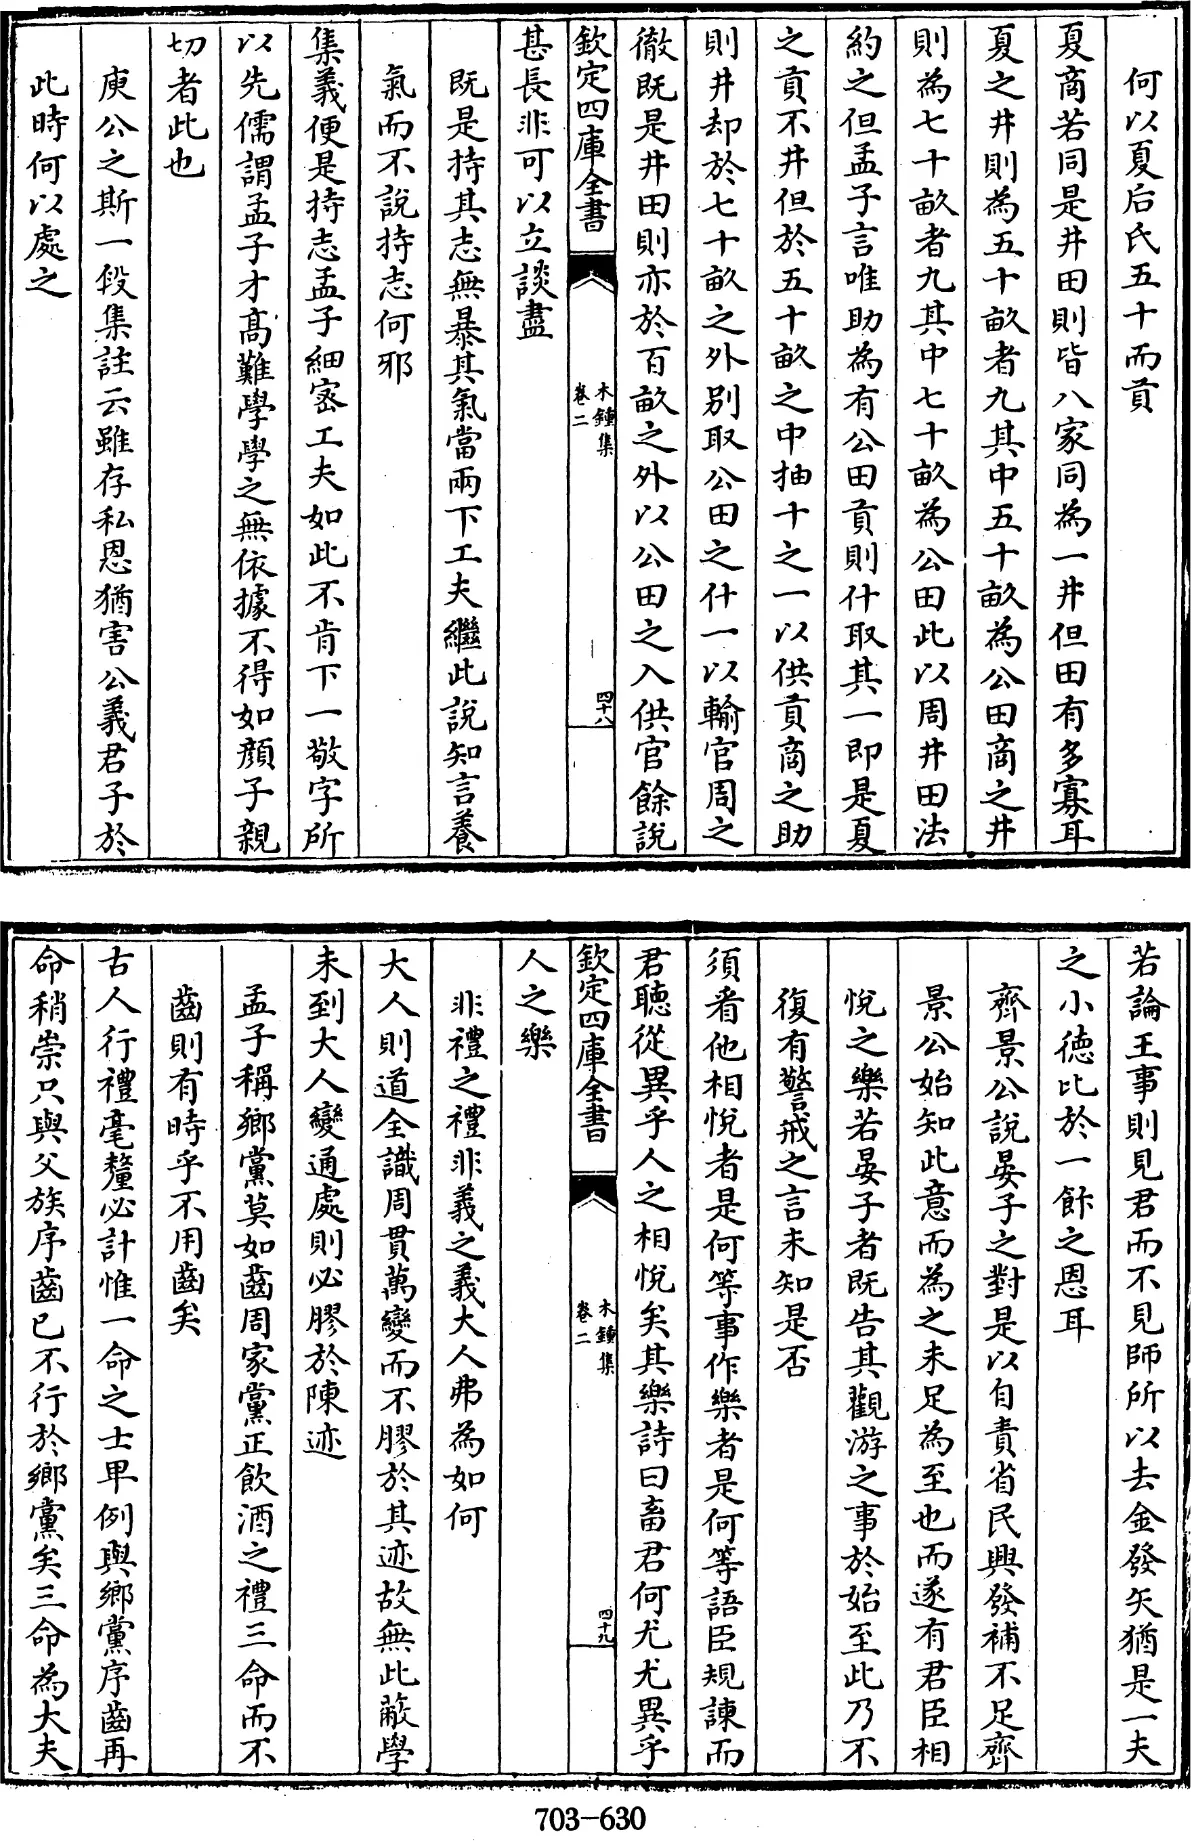 何以夏后氏五十而貢
夏商若同是井田則皆八家同為一井但田有多寡耳
夏之井則為五十畝者九其中五十畝為公田商之井
則為七十畝者九其中七十畝為公田此以周井田法
約之但孟子言唯助為有公田貢則什取其一即是夏
之貢不井但於五十畝之中抽十之一以供貢商之助
則井却於七十畝之外別取公田之什一以輸官周之
徹既是井田則亦於百畝之外以公田之入供官餘說
欽定四庫全書
木鍾集
卷二
四十八
甚長非可以立談盡
既是持其志無暴其氣當兩下工夫繼此說知言養
氣而不說持志何邪
集義便是持志孟子細宻工夫如此不肯下一敬字所
以先儒謂孟子才高難學學之無依據不得如顔子親
切者此也
庾公之斯一段集註云雖存私恩猶害公義君子於
此時何以處之
若論王事則見君而不見師所以去金發矢猶是一夫
之小徳比於一飰之恩耳
齊景公說晏子之對是以自責省民興發補不足齊
景公始知此意而為之未足為至也而遂有君臣相
悅之樂若晏子者既告其觀游之事於始至此乃不
復有警戒之言未知是否
須看他相悅者是何等事作樂者是何等語臣規諫而
君聽從異乎人之相悅矣其樂詩曰畜君何尤尤異乎
欽定四庫全書
木鍾集
卷二
四十九
人之樂
非禮之禮非義之義大人弗為如何
大人則道全識周貫萬變而不膠於其迹故無此蔽學
未到大人變通處則必膠於陳迹
孟子稱鄉黨莫如齒周家黨正飲酒之禮三命而不
齒則有時乎不用齒矣
古人行禮毫釐必計惟一命之士甲例與鄉黨序齒再
命稍崇只與父族序齒已不行於鄉黨矣三命為大夫
703-630